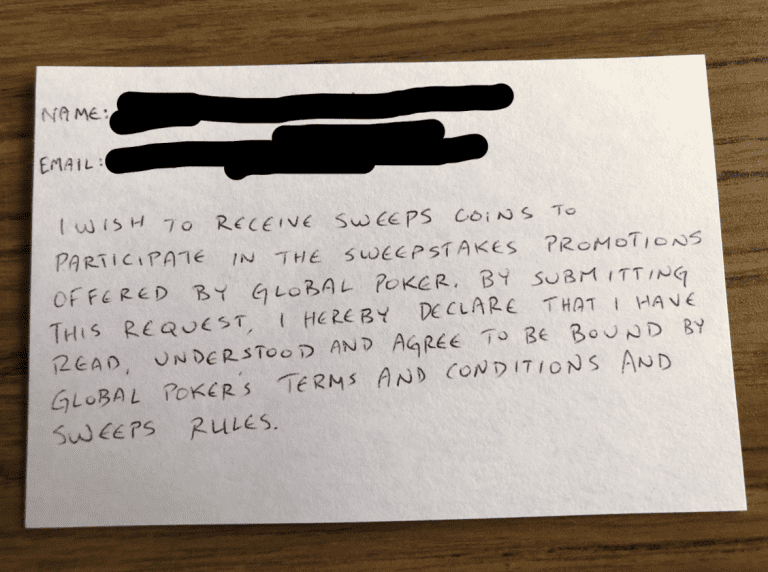 NAME:
EMAIL:
I WISH TO RECEIVE SWEEPS COINS TO
PARTICIPATE IN THE SWEEPSTAKES PROMOTIONS
OFFERED BY GLOBAL POKER. BY SUBMITTING
THIS REQUEST, I HEREBY DECLARE THAT I HAVE
READ, UNDERSTOOD AND AGREE TO BE BOUND BY
GLOBAL POKER'S TERMS AND CONDITIONS AND
SWEEPS RULES.